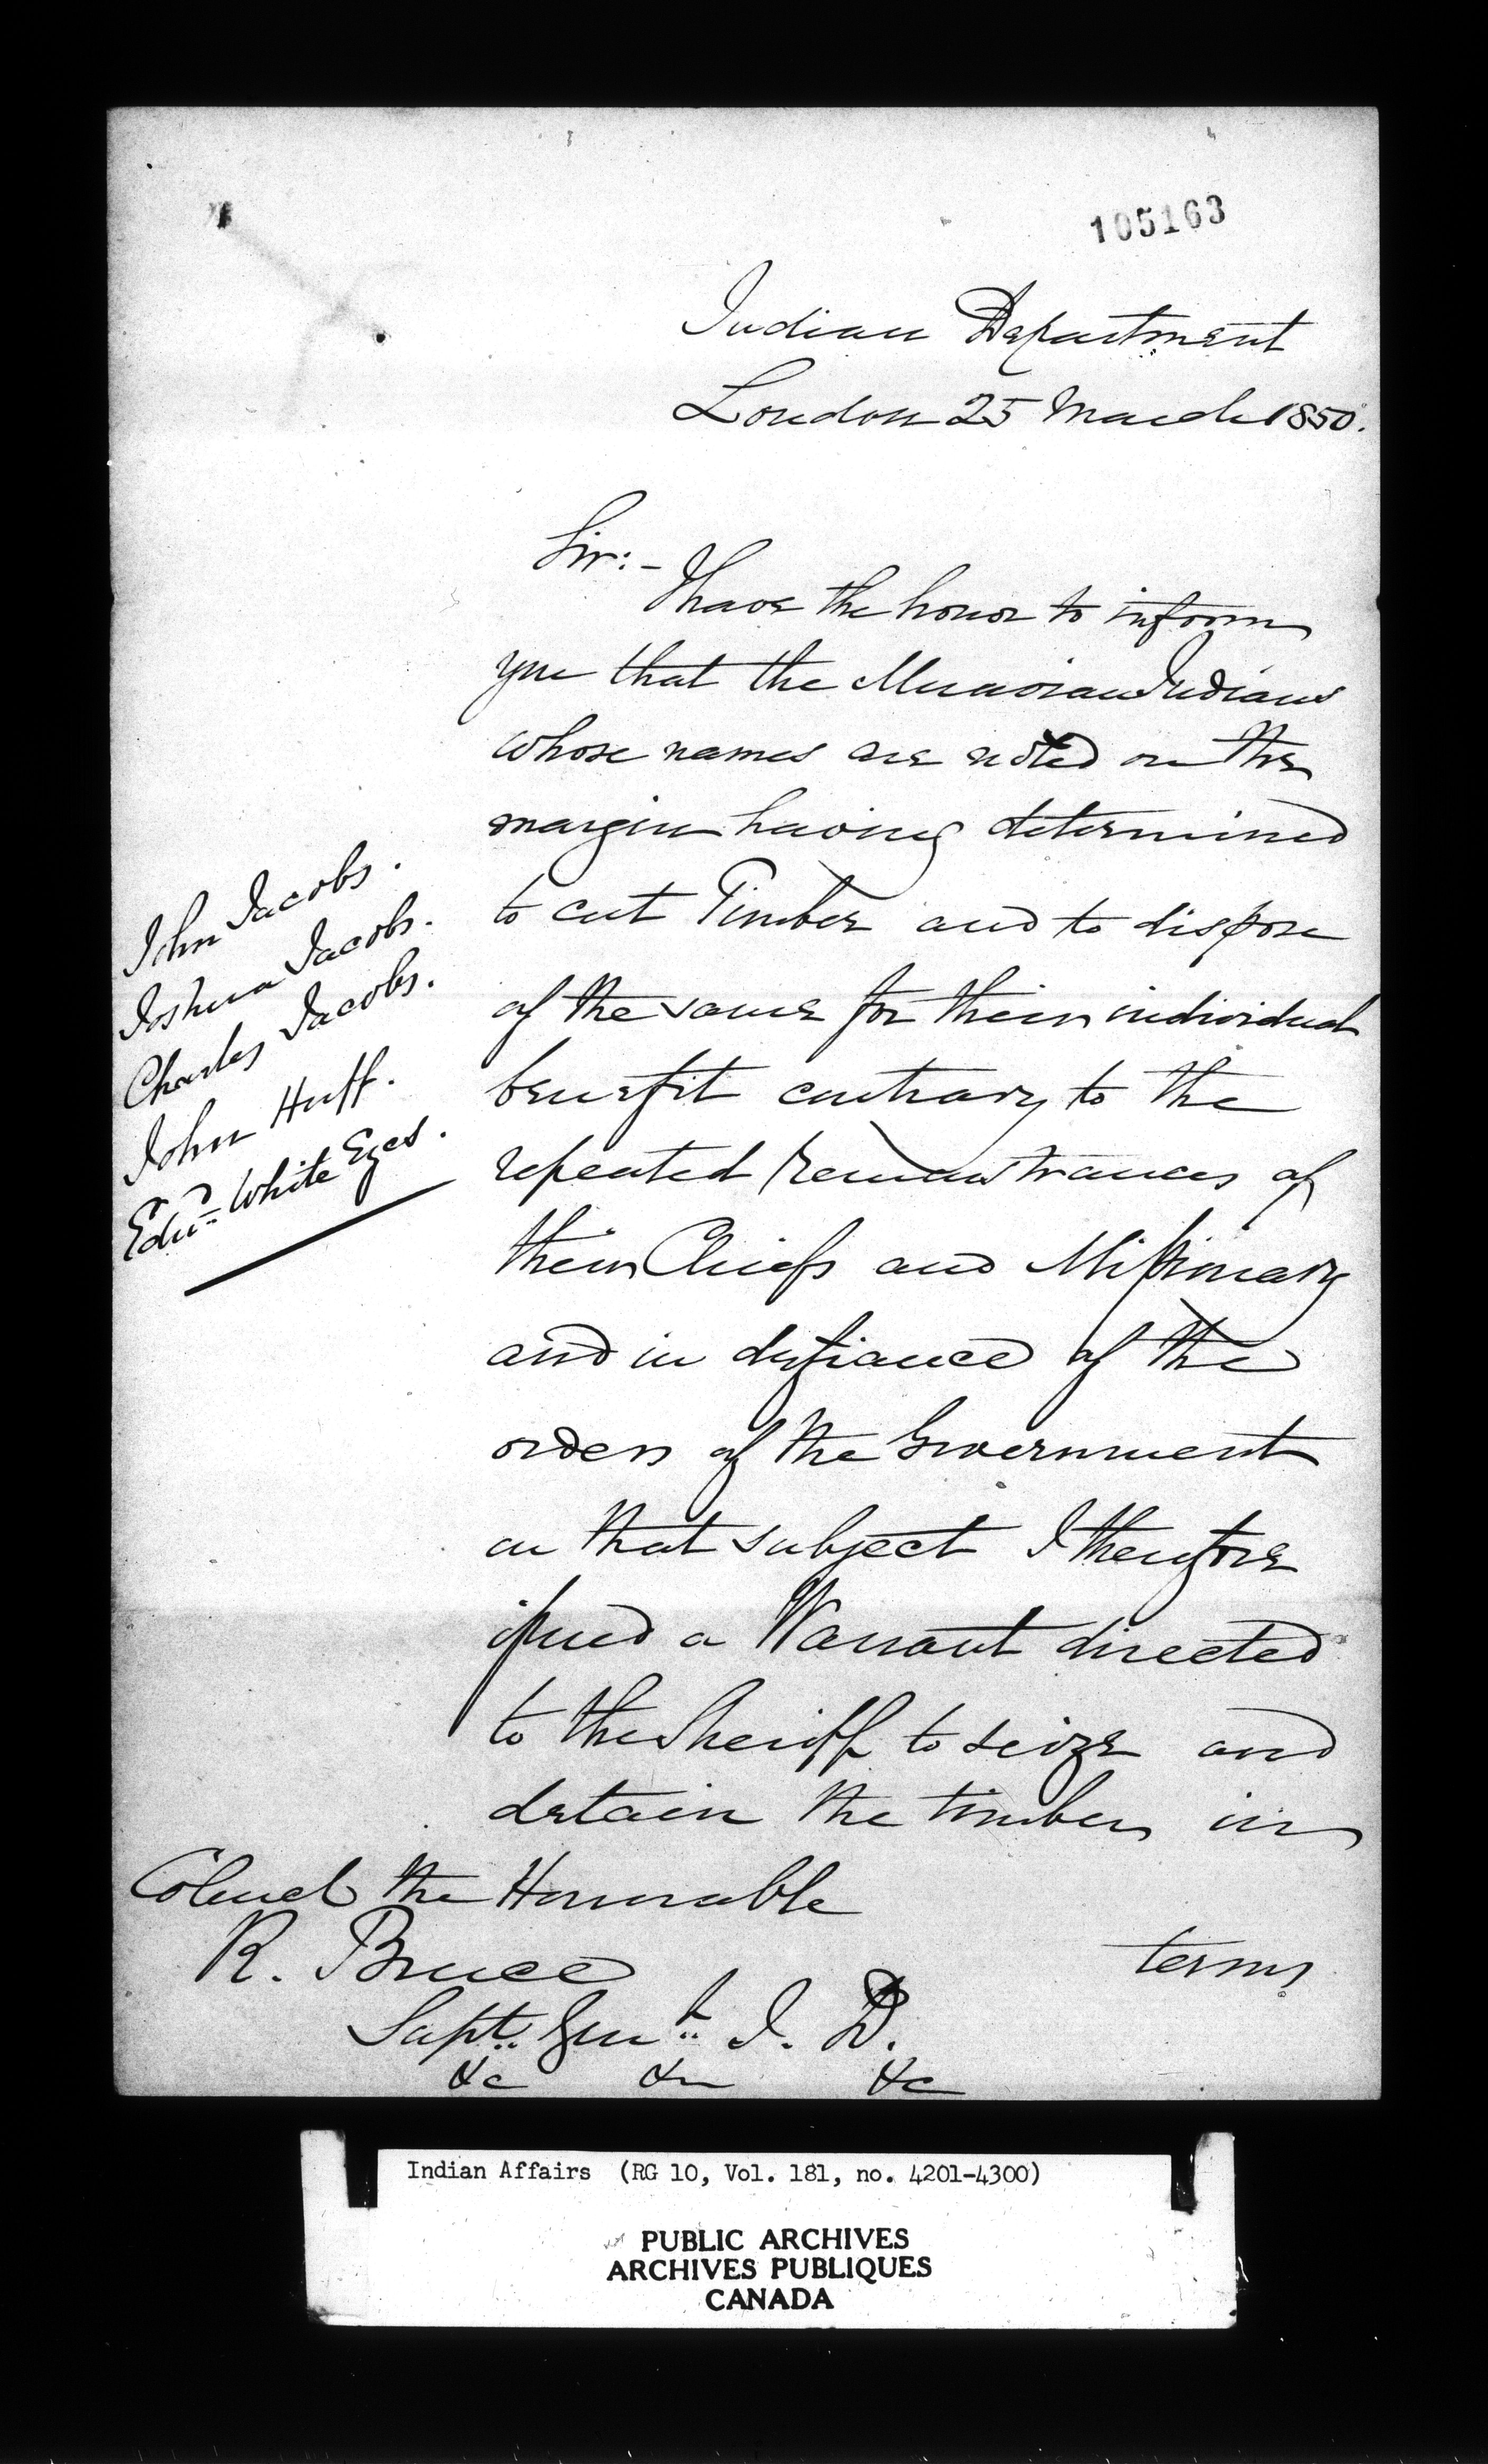 105163
Indian Department
London 25 March 1850.
Sir:-
I have the honor to inform
you that the Muavian Indians
whose names are noted on the
margin having determined
to cut Timber and to dispose
of the same for their individual
benefit contrary to the
repeated remonstrances of
their Chiefs and Missionary
and in defiance of the
orders of the Government
on that subject I therefore
issued a Warrant directed
to the Sheriff to seize and
detain the timber in
terms
John Jacobs.
Joshua Jacobs.
Charles Jacobs.
John Huff.
Edwd White Eyes.
Colonel the Honorable
R. Bruce
Supt. Genl. I. D.
&c &c &c
Indian Affairs (RG 10, Vol. 181, no. 4201-4300)
PUBLIC ARCHIVES
ARCHIVES PUBLIQUES
CANADA